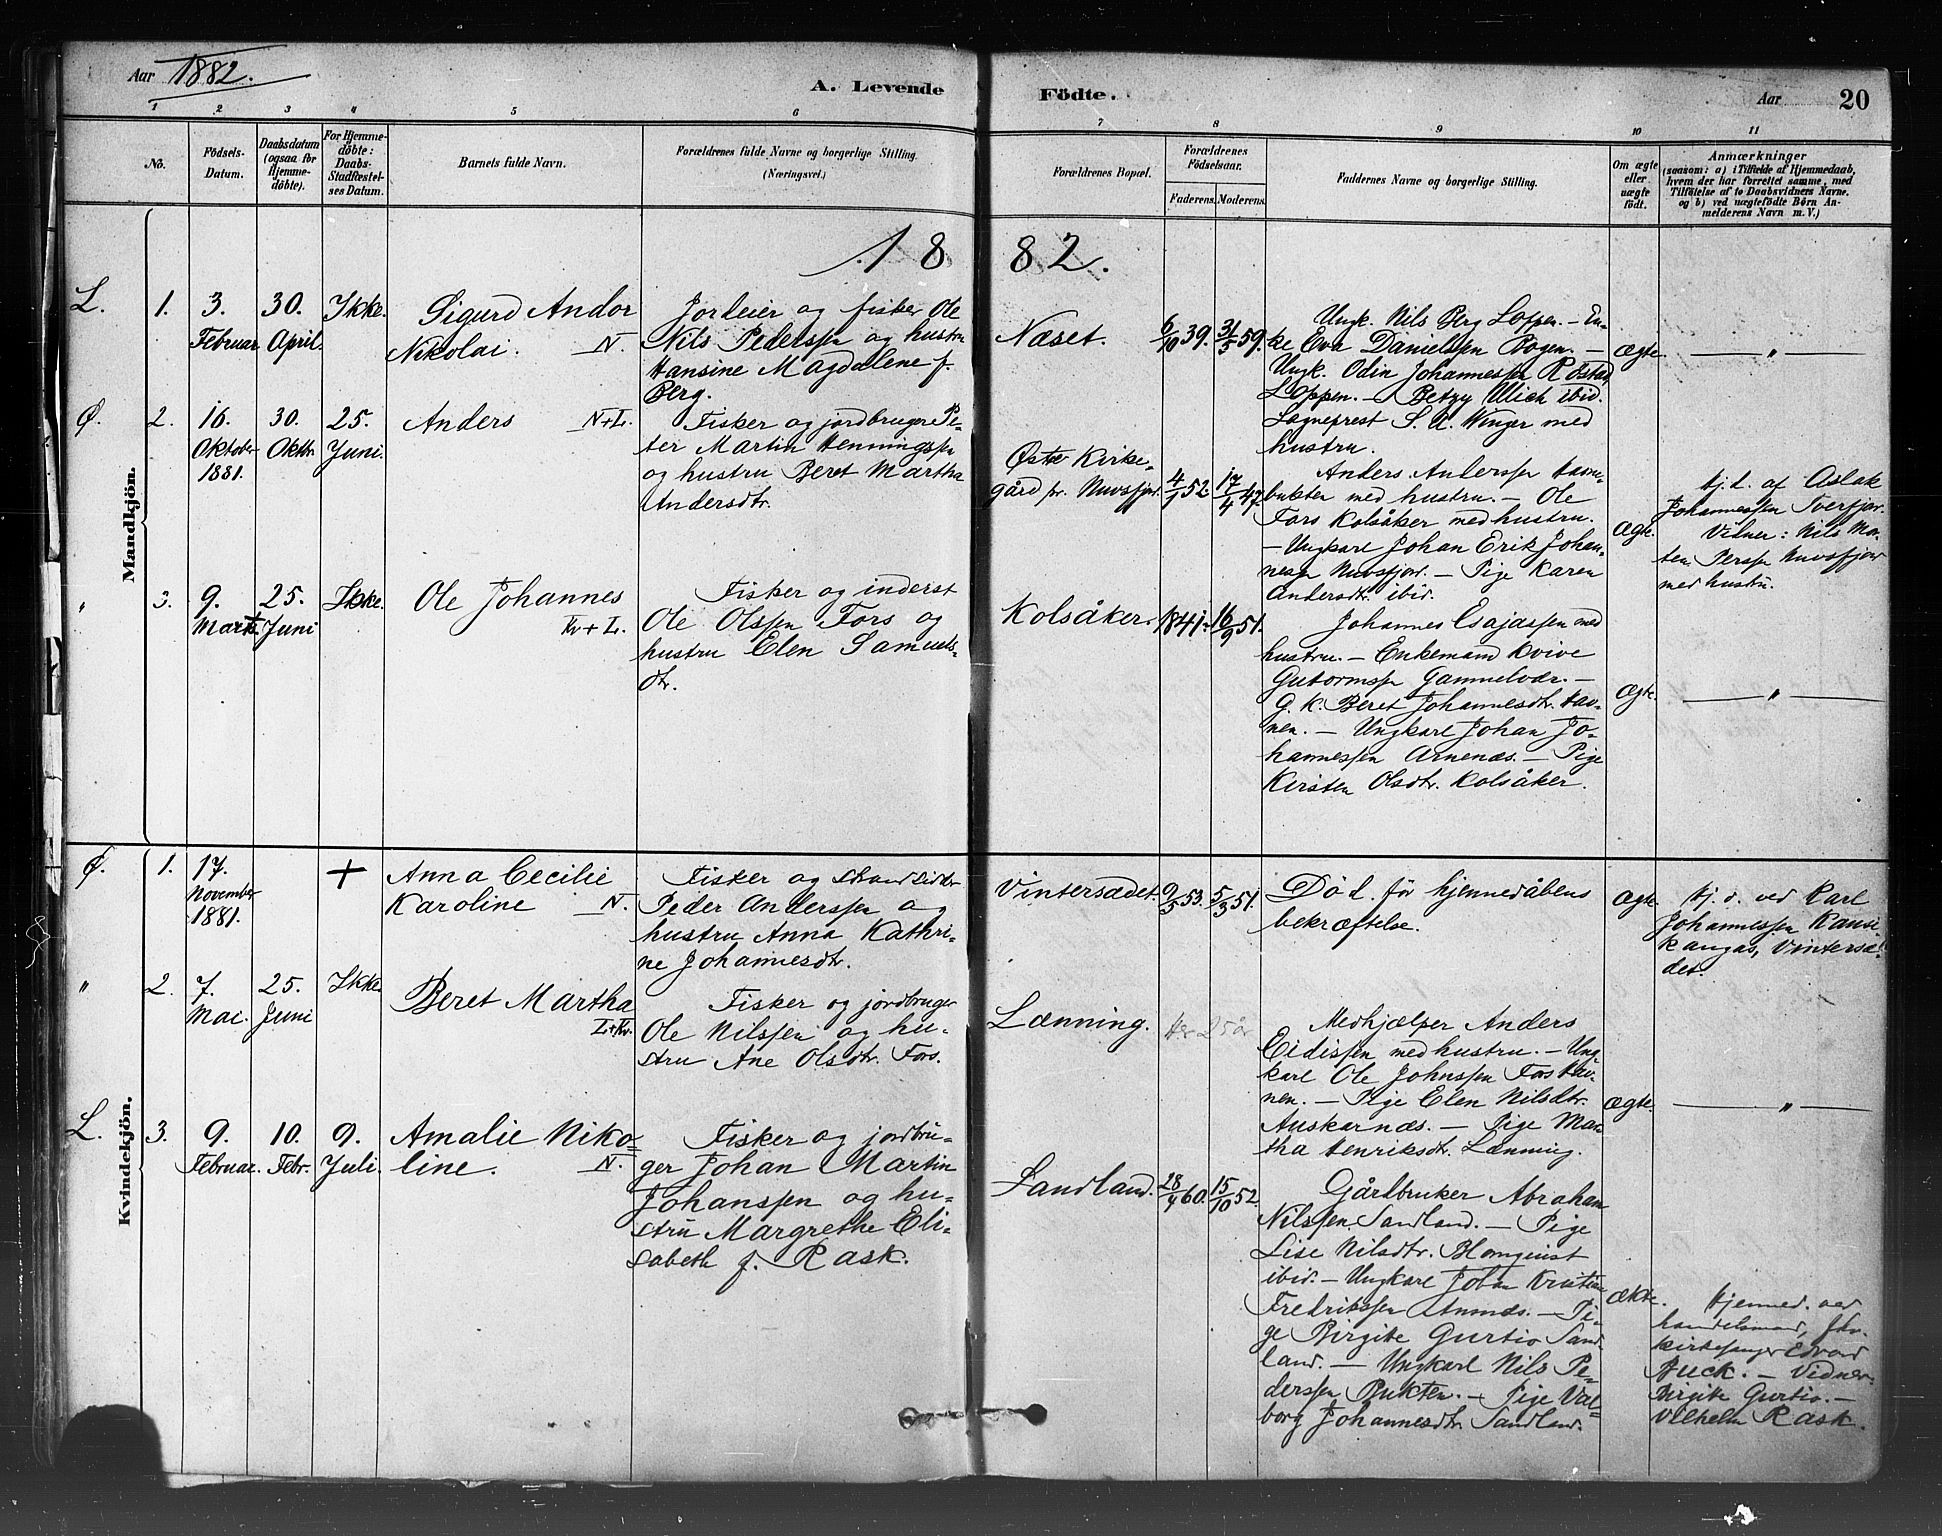 Aar 1882.
A. Levende
Födte.
Aar
20
1 2 3 4 5 6 7 8 9 10 11
No.
Födsels-
Datum.
Daabsdatum
(ogsaa for
Hjemme-
döbte).
For Hjemme-
döbte:
Daabs-
Stadfæstel-
ses Datum.
Barnets fulde Navn.
Forældrenes fulde Navne og borgerlige Stilling.
(Næringsvei.)
Forældrenes Bopæl.
Forældrenes
Födselsaar.
Faderens.
Moderens.
Faddernes Navne og borgerlige Stilling.
Om ægte
eller
uægte
födt.
Anmærkninger
(saasom: a) i Tilfælde af Hjemmedaab,
hvem der har forrettet samme, med
Tilföielse af to Daabsvidners Navne.
og b) ved uægtefödte Börn An-
melderens Navn m. V.)
1882.
Mandkjön.
L.
1.
3.
Februar
30.
April.
Ikke.
Sigurd Andor
Nikolai. N.
Jordeier og fisker Ole
Nils Pederssen og hustru
Hansine Magdalene f.
Berg.
Næset.
6/10 39.
31/5 59.
Ungk. Nils Berg Loppen. – En-
ke Eva Danielssen Bogen. –
Ungk. Odin Johannessen Röstad
Loppen. – Betzy Ulich ibid.
Sogneprest S. A. Winger med
hustru.
Ægte.
— " —
Ø.
2.
16.
Oktober
1881.
30.
Oktbr.
25.
Juni.
Anders N+L.
Fisker og jordbruger Pe-
ter Martin Henningssen
og hustru Beret Martha
Andersdtr.
Østre Kirke-
gård pr. Nuvsfjord.
4/1 52.
17/4 47.
Anders Anderssen Havne-
bukten med hustru. – Ole
Fors Kolsåker med hustru.
– Ungkarl Johan Erik Johan-
nessen Nuvsfjor. – Pige Karen
Andersdtr. ibid.
Ægte.
Hj. d. af Aslak
Johannessen Tverfjor.
Vidner: Nils Mor-
ten Perssen Nuvsfjor
med hustru.
"
3.
9.
Marts.
25.
Juni
Ikke.
Ole Johannes
Kv+L.
Fisker og inderst
Ole Olssen Fors og
hustru Elen Samuels-
dtr.
Kolsåker.
1841.
16/9 51.
Johannes Esajassen med
hustru. – Enkemand Kvive
Gutormssen Gammelvær. –
G. K. Beret Johannesdtr. Hav-
nen. – Ungkarl Johan Jo-
hannessen Arnenæs. – Pige
Kirsten Olsdtr. Kolsåker.
Ægte.
— " —
Kvindekjön.
Ø.
1.
17.
November
1881.
+
Anna Cecilie
Karoline N.
Fisker og strandsidder
Peder Anderssen og
hustru Anna Kathri-
ne Johannesdtr.
Vintersædet.
9/5 53.
5/3 51.
Död för hjemmedåbens
bekræftelse.
Ægte.
Hj. d. ved Karl
Johannessen
Vintersæ-
det.
"
2.
7.
Mai.
25.
Juni
Ikke
Beret Martha
L+Kv.
Fisker og jordbruger
Ole Nilssen og hu-
stru Ane Olsdtr. Fors.
Lænning.
25 år
Medhjælper Anders
Eidissen med hustru. – Ung-
karl Ole Johnssen Fors Hav-
nen. – Pige Elen Nilsdtr.
Auskarnæs. – Pige Mar-
tha Henriksdtr. Lænning.
Ægte.
— " —
L.
3.
9.
Februar.
10.
Febr.
9.
Juli.
Amalie Niko-
line. N.
Fisker og jordbru-
ger Johan Martin
Johanssen og hu-
stru Margrethe Eli-
sabeth f. Rask.
Sandland.
28/4 60.
15/10 52.
Gårdbruker Abraham
Nilssen Sandland. – Pige
Lise Nilsdtr. Blomqvist
ibid. – Ungkarl Johan Kristian
Fredrikssen – Pi-
ge Birgite Gurtio Sand-
land. – Ungkarl Nils Pe-
derssen Bukten. – Pige Val-
borg Johannesdtr. Sandland.
Ækte.
Hjemmed. ved
handelsmand,
kirkesanger Edvard
Buck. – Vidner:
Birgite Gurtio –
Vilhelm Rask.